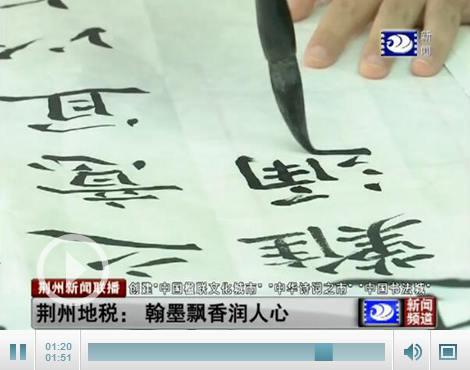 新闻
荆州新闻联播
创建"中国楹联文化城市" "中华诗词之市" "中国书法城"
荆州地税： 翰墨飘香润人心
新闻
频道
01:20
01:51